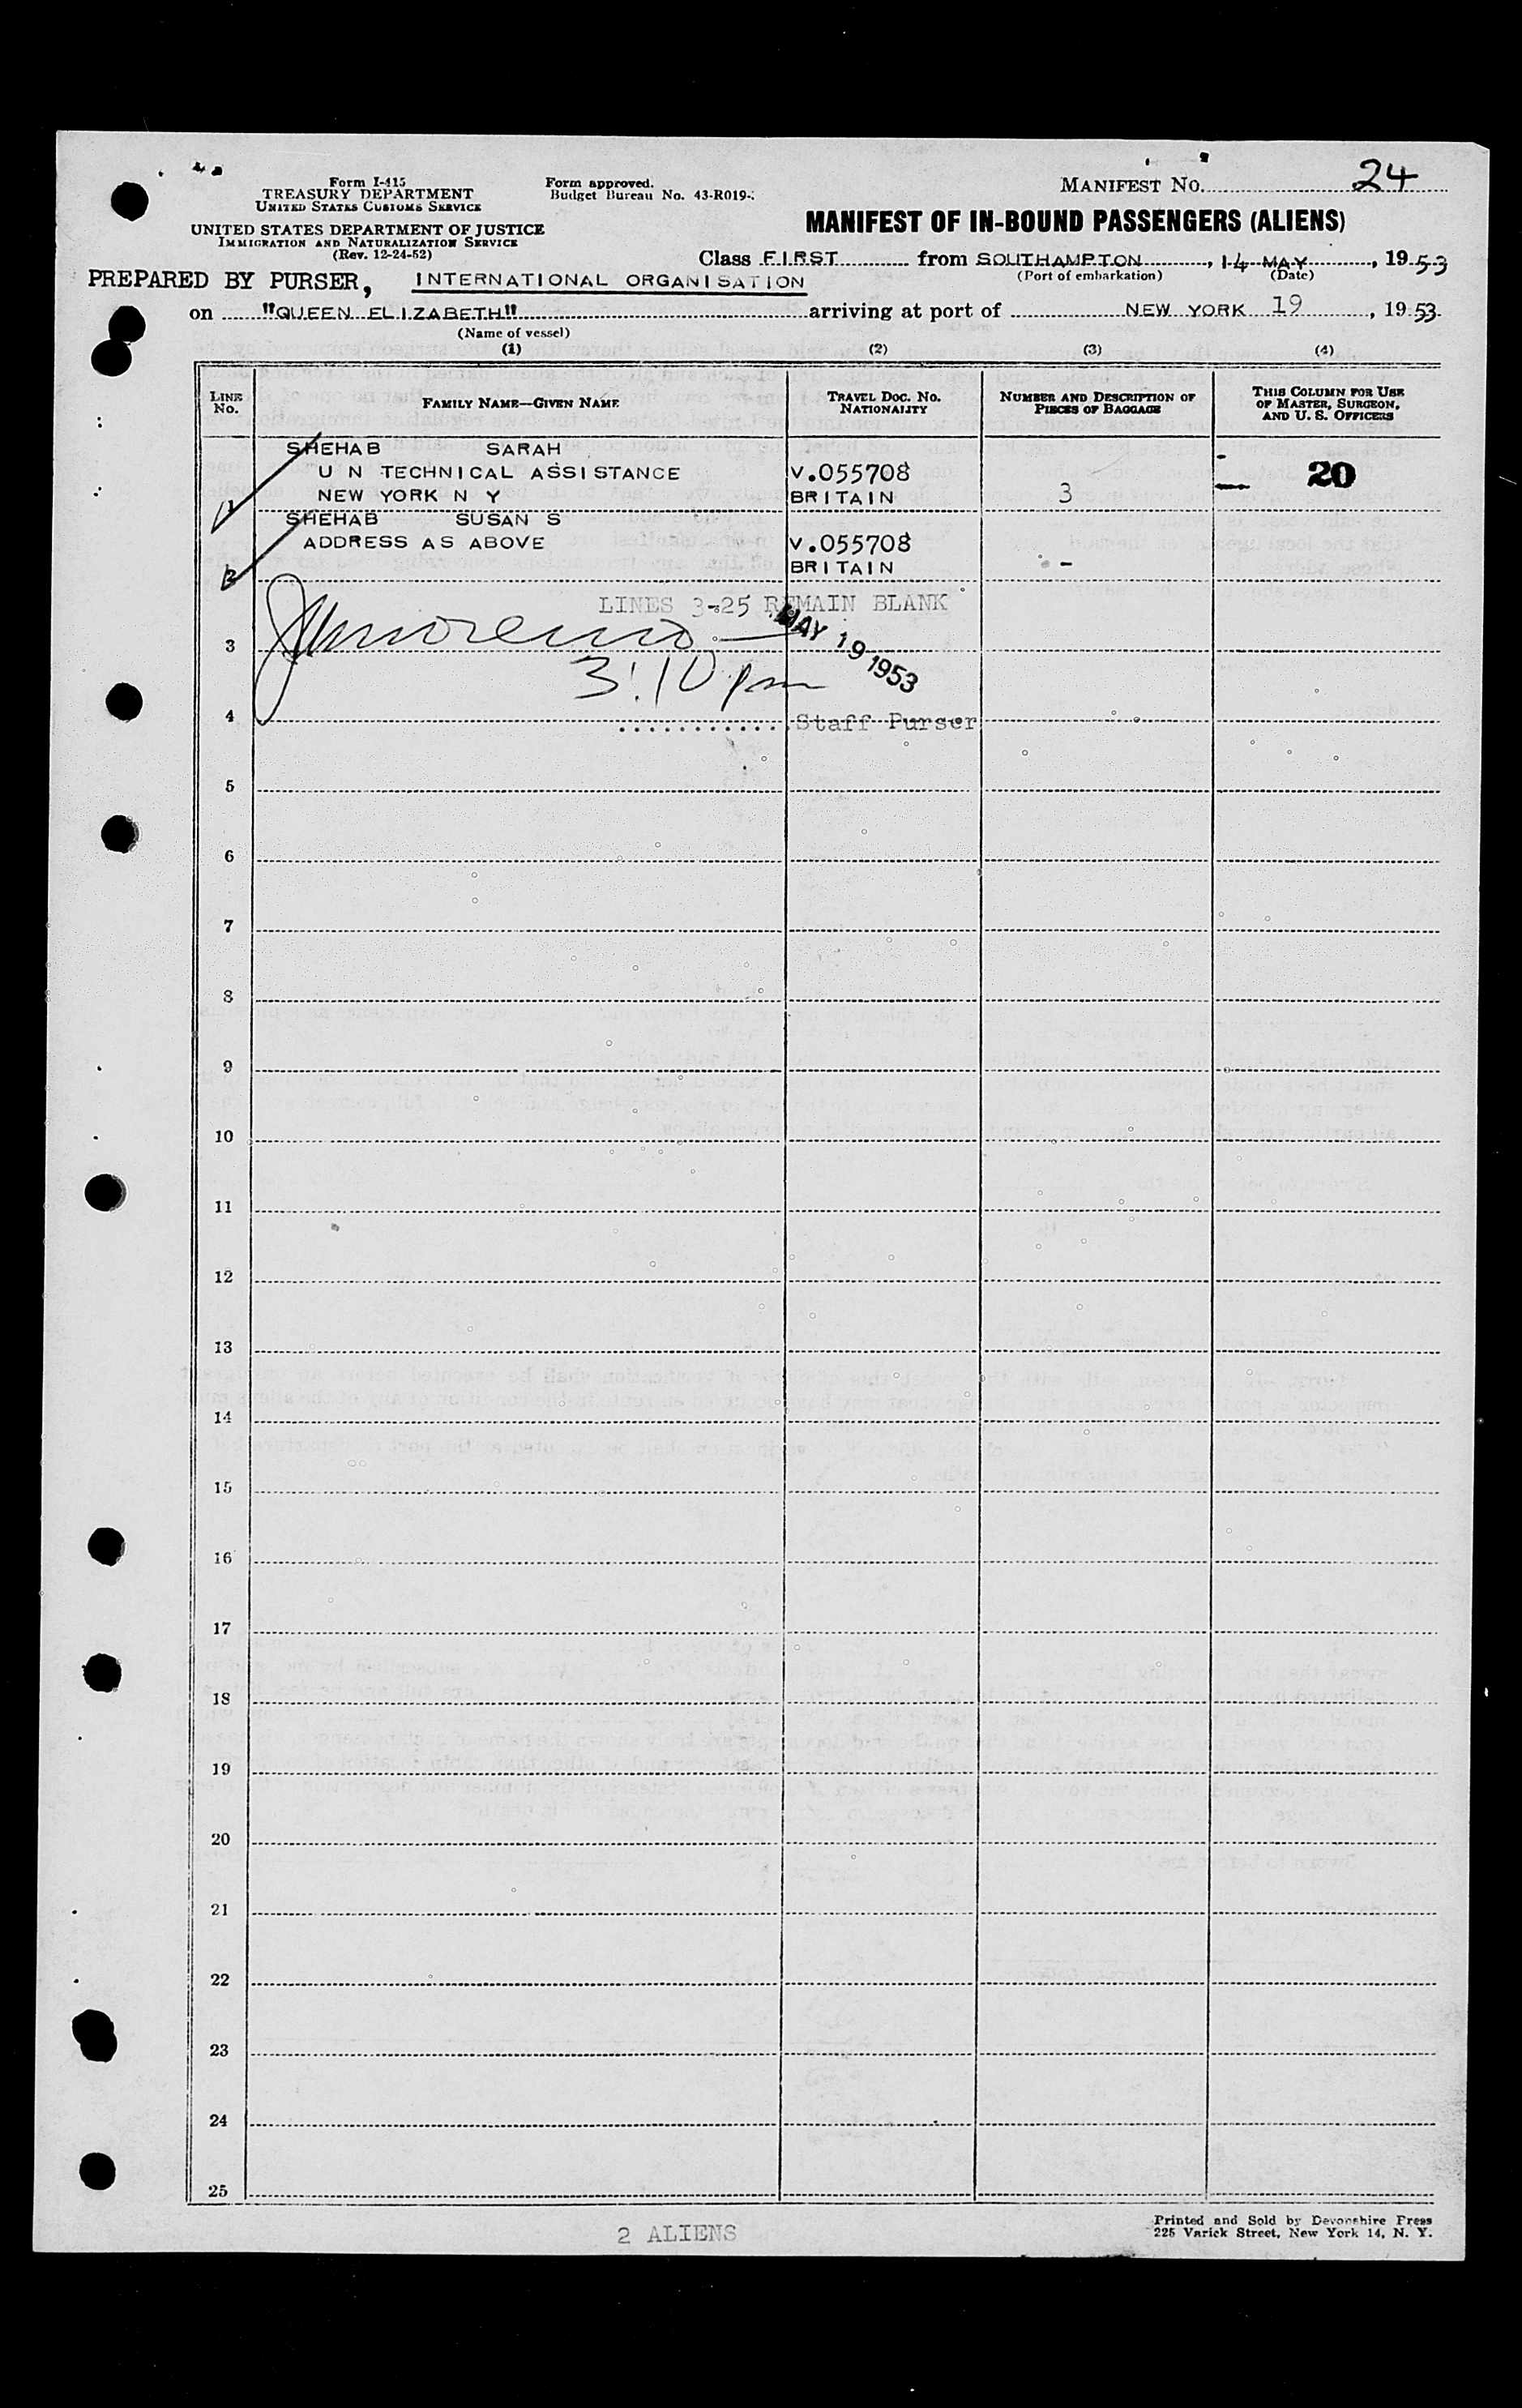 Form I-415
TREASURY DEPARTMENT
UNITED STATES CUSTOMS SERVICE
UNITED STATES DEPARTMENT OF JUSTICE
IMMIGRATION AND NATURALIZATION SERVICE
(Rev. 12-24-52)
Form approved.
Budget Bureau No. 43-R019-
MANIFEST NO. 24
MANIFEST OF IN-BOUND PASSENGERS (ALIENS)
Class FIRST from SOUTHAMPTON, 14 MAY, 1953
(Port of embarkation) (Date)
PREPARED BY PURSER, INTERNATIONAL ORGANISATION
on "QUEEN ELIZABETH" arriving at port of NEW YORK 19, 1953
(Name of vessel)
(1) (2) (3) (4)
LINE No. FAMILY NAME—GIVEN NAME TRAVEL DOC. No. NATIONALITY NUMBER AND DESCRIPTION OF PIECES OF BAGGAGE THIS COLUMN FOR USE OF MASTER, SURGEON, AND U. S. OFFICERS
SHEHAB SARAH
U N TECHNICAL ASSISTANCE V.055708 20
1 NEW YORK N Y BRITAIN 3
SHEHAB SUSAN S
ADDRESS AS ABOVE V.055708
2 BRITAIN -
LINES 3-25 REMAIN BLANK
MAY 19 1953
3
3:10 pm
4 Staff Purser
5
6
7
8
9
10
11
12
13
14
15
16
17
18
19
20
21
22
23
24
25
2 ALIENS
Printed and Sold by Devonshire Press
225 Varick Street, New York 14, N. Y.